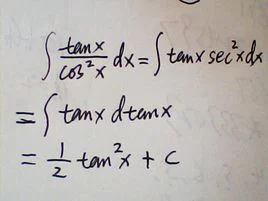 ∫ tanx/cos²x dx = ∫ tanx sec²x dx
= ∫ tanx dtanx
= 1/2 tan²x + C